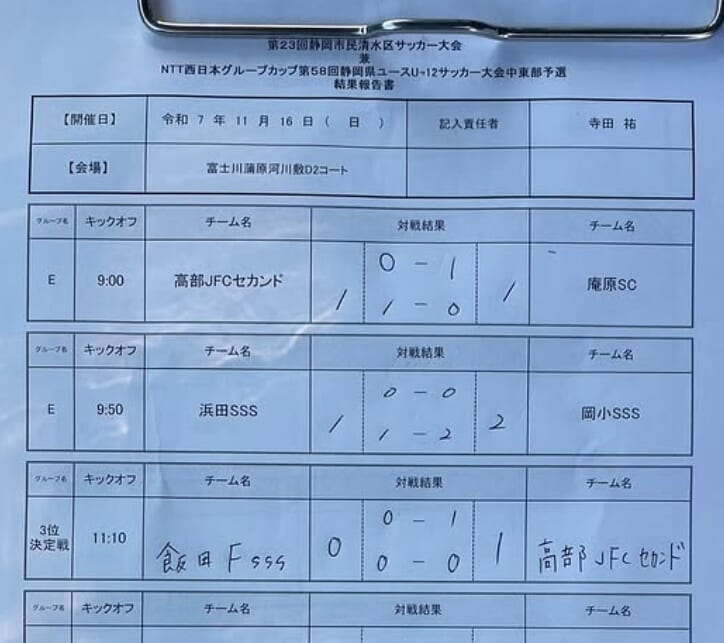 第23回静岡市民清水区サッカー大会
兼
NTT西日本グループカップ第58回静岡県ユースU-12サッカー大会中東部予選
結果報告書
【開催日】 令和 7 年 11 月 16 日 ( 日 ) 記入責任者 寺田 祐
【会場】 富士川蒲原河川敷D2コート
グループ名 キックオフ チーム名 対戦結果 チーム名
E 9:00 高部JFCセカンド 1 0 - 1 1 - 0 1 庵原SC
グループ名 キックオフ チーム名 対戦結果 チーム名
E 9:50 浜田SSS 1 0 - 0 1 - 2 2 岡小SSS
グループ名 キックオフ チーム名 対戦結果 チーム名
3位決定戦 11:10 飯田Fsss 0 0 - 1 0 - 0 1 高部JFCセカンド
グループ名 キックオフ チーム名 対戦結果 チーム名